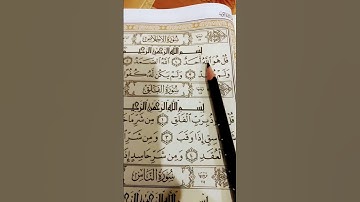 سُورَةُ الإِخْلَاصِ
بِسْمِ اللَّهِ الرَّحْمَٰنِ الرَّحِيمِ
قُلْ هُوَ اللَّهُ أَحَدٌ ١ اللَّهُ الصَّمَدُ ٢
وَلَمْ يَكُن لَّهُ
سُورَةُ الفَلَقِ
بِسْمِ اللَّهِ الرَّحْمَٰنِ الرَّحِيمِ
بِرَبِّ الْفَلَقِ ١ مِن شَرِّ مَا
إِذَا وَقَبَ ٣ وَمِن شَرِّ
الْعُقَدِ ٤ وَمِن شَرِّ حَاسِدٍ إِذَا
سُورَةُ النَّاسِ